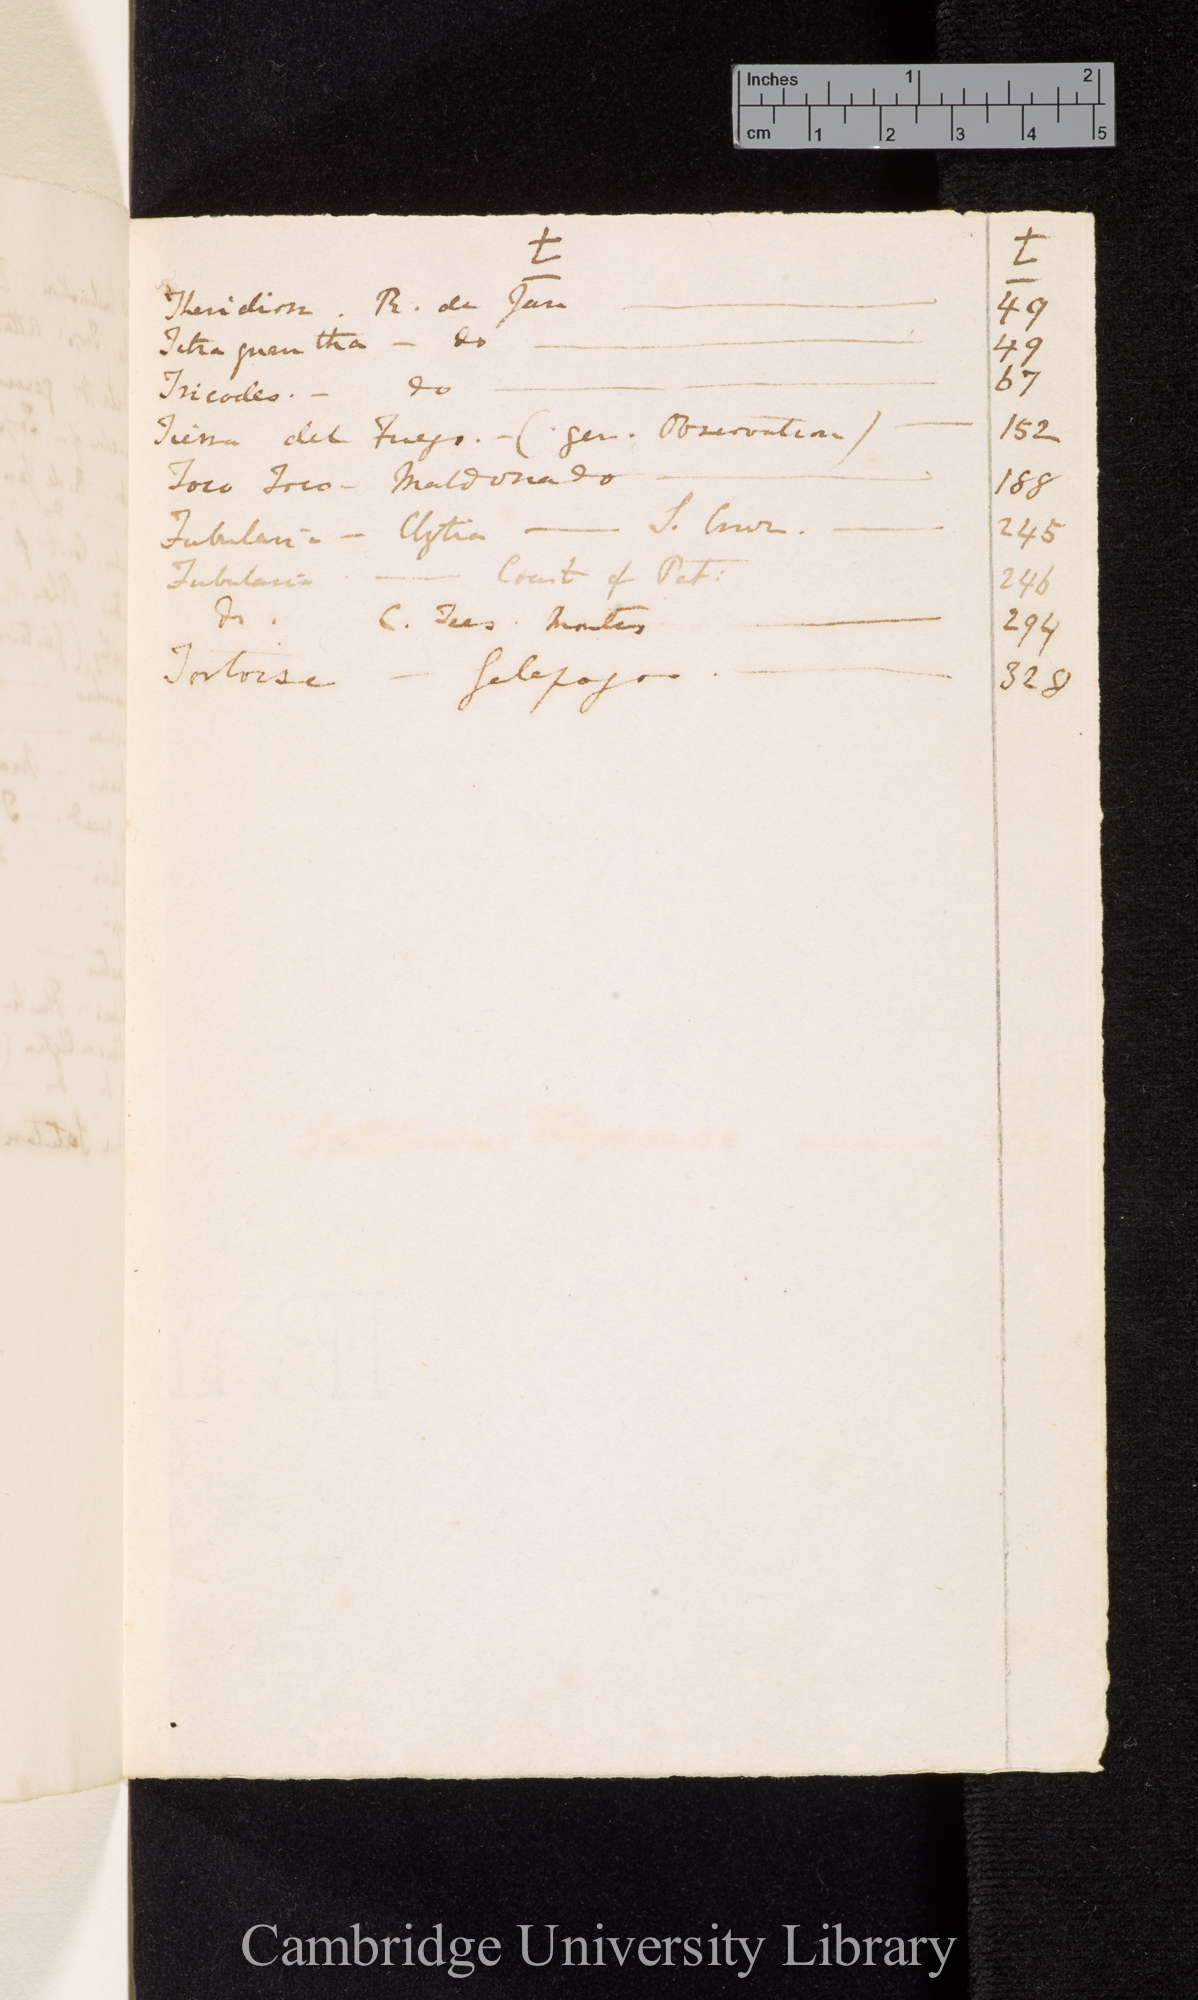 Inches 1 2
cm 1 2 3 4 5
t t
Theridion. R. de Jan 49
Tetragnantha - do 49
Tricodes. - do 67
Tierra del Fuego. - (gen. Observation) 152
Toco Toco - Maldonado 188
Tubularia - Clytia - S. Cruz. 245
Tubularia - Coast of Pat: 246
do. C. Tres Montes 294
Tortoise - Galapagos. 328
Cambridge University Library